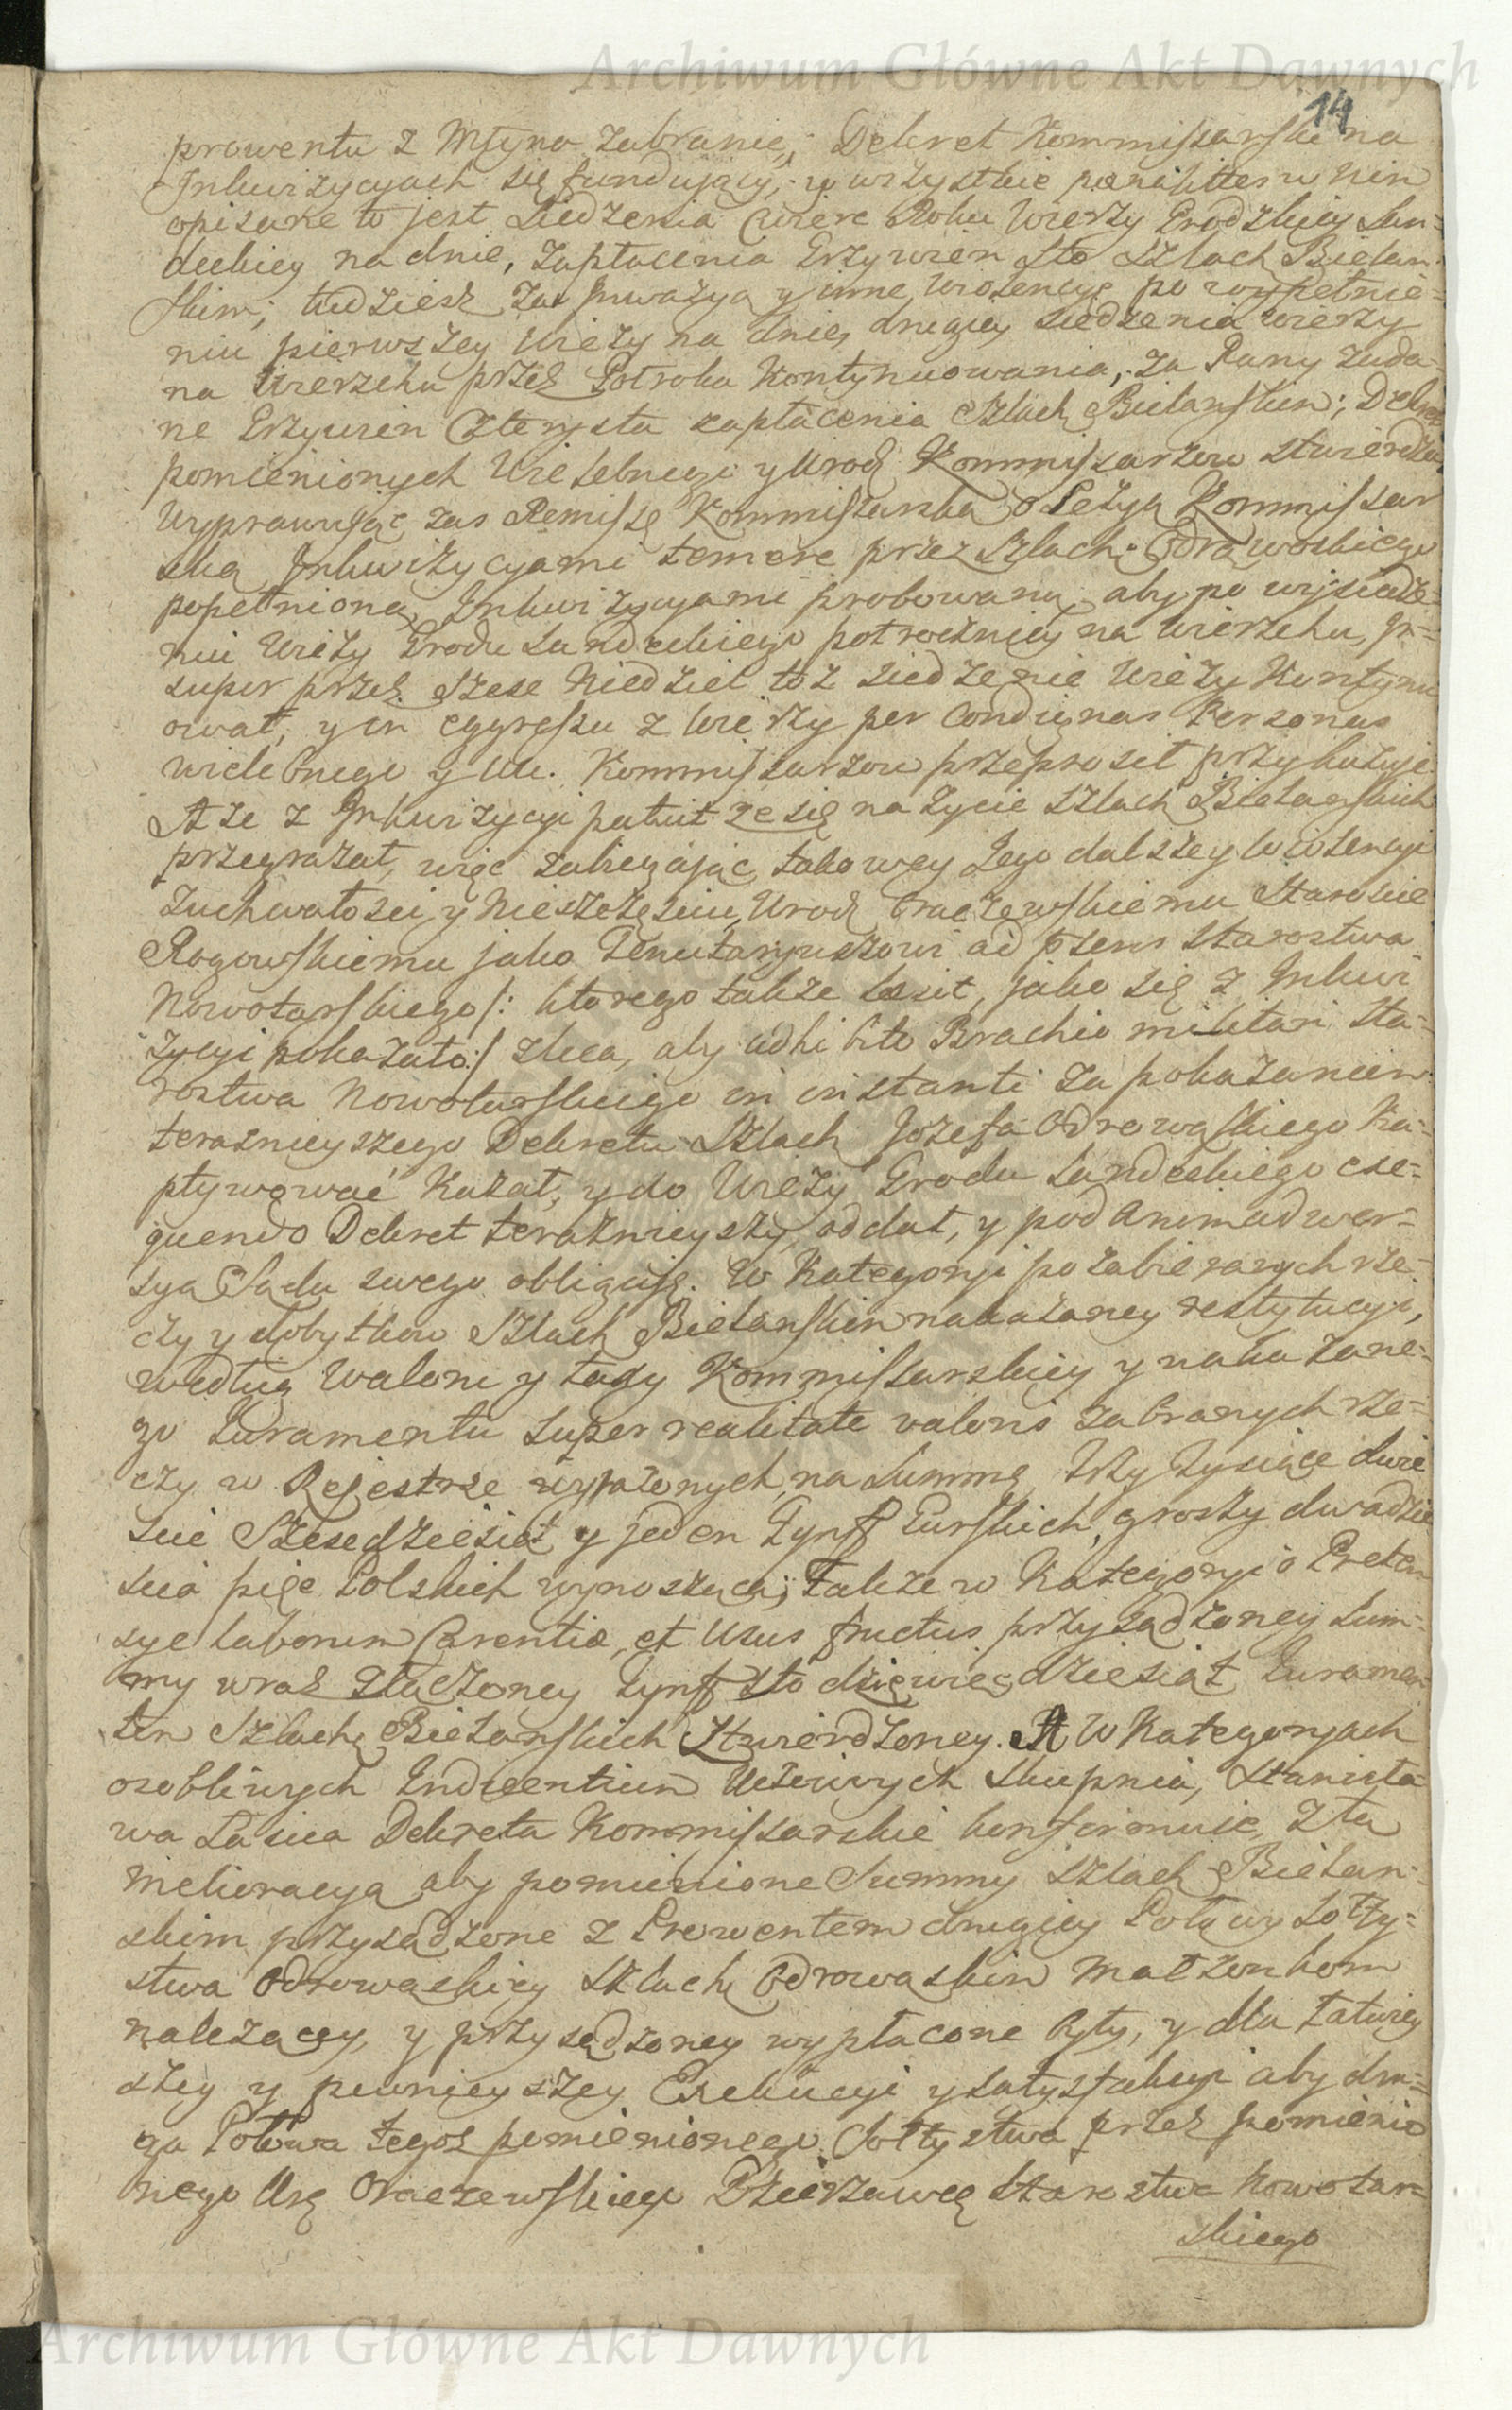 Archiwum Główne Akt Dawnych
14
prowentu z Młyna zabranie, Dekret Kommissarski na
Inkwizycyach się fundujący, y wszystkie w nim
opisane to jest siedzenia ćwierć Roku Wieży Grodzkiey San-
deckiey na dnie, zapłacenia Grzywien sto Szlach Bielan-
skim; tudziesz za Inwazyą y inne wiolencye po wypełnie-
niu pierwszey Wieży na dnie, drugiey siedzenia wieży
na Wierzchu przez Potroku kontynuowania, za Rany zada-
ne Grzywien Czterysta zapłacenia Szlach Bielanskim; Dekret
pomienionych Wielebnego y Urod Kommissarzow stwierdza
Wyprawując zas Remissę Kommissarska o Lezyą Kommissar
ską Inkwizycyami temere przez Szlach. Odrawoskiego
popełnioną, Inkwizycyami probowaną, aby po wysiedze-
niu Wieży Grodu Sandeckiego potroczniey na wierzchu, in-
super przez szesc Niedziel toż siedzenie Wieży kontynu
ował, y in egressu z Wieży per Condignas Personas
wielebnego y UU. Kommissarzow przeprosił przykazuje.
A że z Inkwizycyi patuit że się na życie Szlach Bielanskich
przegrażał, więc zabiegając takowey Jego dalszey wiolencyi
Zuchwałosci, y Nieszczęsciu, Urod Oraczewskiemu Staroscie
Rogowskiemu jako Tenutaryuszowi ad psens Starostwa
Nowotarskiego /: ktorego także łaził, jako się z Inkwi
zycyi pokazało:/ zleca, aby adhibito Brachio militari Sta-
rostwa Nowotarskiego in instanti za pokazaniem
terazniejszego Dekretu Szlach Jozefa Odrowąskiego Ka-
ptywować kazał, y do Wieży Grodu Sandeckiego exe-
quendo Dekret teraznieyszy, oddał, y pod animadwer-
syą Sądu swego obliguje. W Kategoryi pozabieranych rze-
czy y dobytkow Szlach Bielanskim nakazaney restytucyi,
według Waloru y taxy Kommissarskiey y nakazane-
go Juramentu super realitate valoris zabranych rze-
czy w Rejestrze wyrażonych, na Summę trzy tysiące dwie
scie szescdziesiąt y jeden Tynff Turskich, groszy dwadzie
scia pięc Polskich wynoszącą; także w kategoryi o Preten
sye laborum Carentiæ, et Usus fructus przysądzoney Sum-
my wraz złączoney Tynff sto dziewięcdziesiąt Juramen-
tem Szlach Bielanskich stwierdzoney. A w kategoryach
osobliwych Indicentium Uczciwych Skupnia, Stanisła
wa Łasica Dekreta Kommissarskie konfirmuie, z tą
melioracyą aby pomienione Summy Szlach Bielan-
skim przysądzone z Prowentem drugiey Połowy Sołty-
stwa Odrowąskiey Szlach Odrowąskim Małżonkom
należącey, y przysądzoney wypłacone były, y dla łatwiey
szey y pewnieyszey Exekucyi y satysfakcyi aby dru-
ga Połowa tegoż pomienionego Sołtystwa przez pomienio
nego Urg Oraczewskiego Dzierżawcę Starostwa Nowotar-
skiego
Archiwum Główne Akt Dawnych